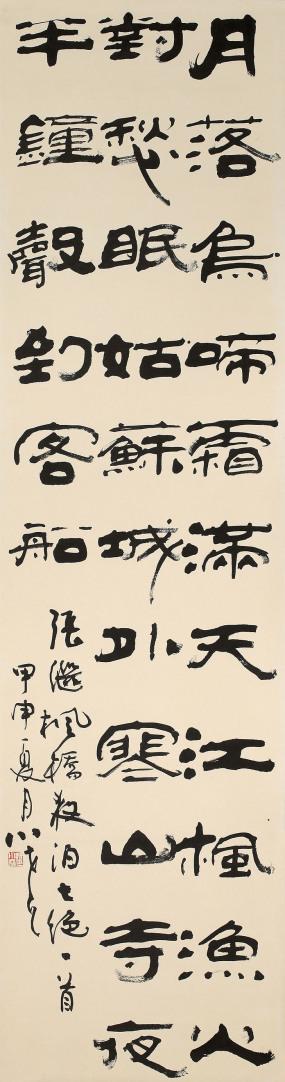 月落烏啼霜滿天江楓漁火
對愁眠姑蘇城外寒山寺夜
半鐘聲到客船
張繼楓橋夜泊七絕一首
甲申夏月